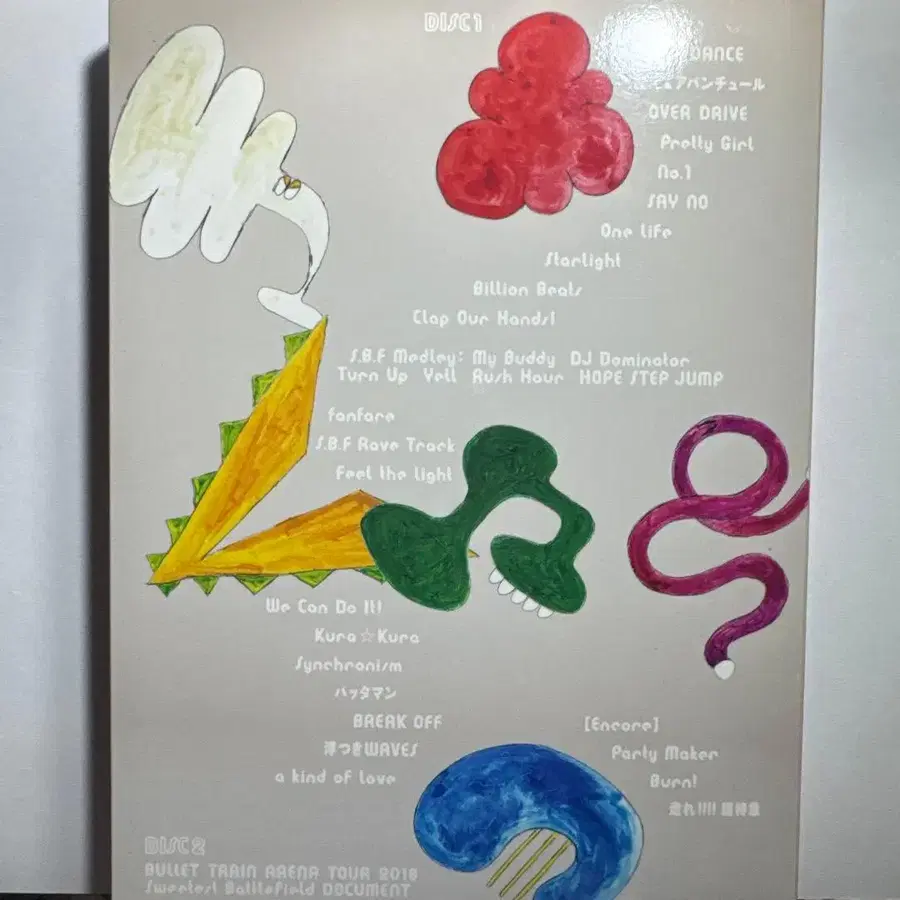 DISC 1
DANCE
アバンチュール
OVER DRIVE
Pretty Girl
No.1
SAY NO
One Life
Starlight
Billion Beats
Clap Our Hands!
S.B.F Medley: My Buddy DJ Dominator
Turn Up Yell Rush Hour HOPE STEP JUMP
fanfare
S.B.F Rave Track
Feel the light
We Can Do It!
Kura☆Kura
Synchronism
バッタマン
BREAK OFF
浮つきWAVES
a kind of love
[Encore]
Party Maker
Burn!
走れ!!!! 超特急
DISC 2
BULLET TRAIN ARENA TOUR 2018
Sweetest Battlefield DOCUMENT